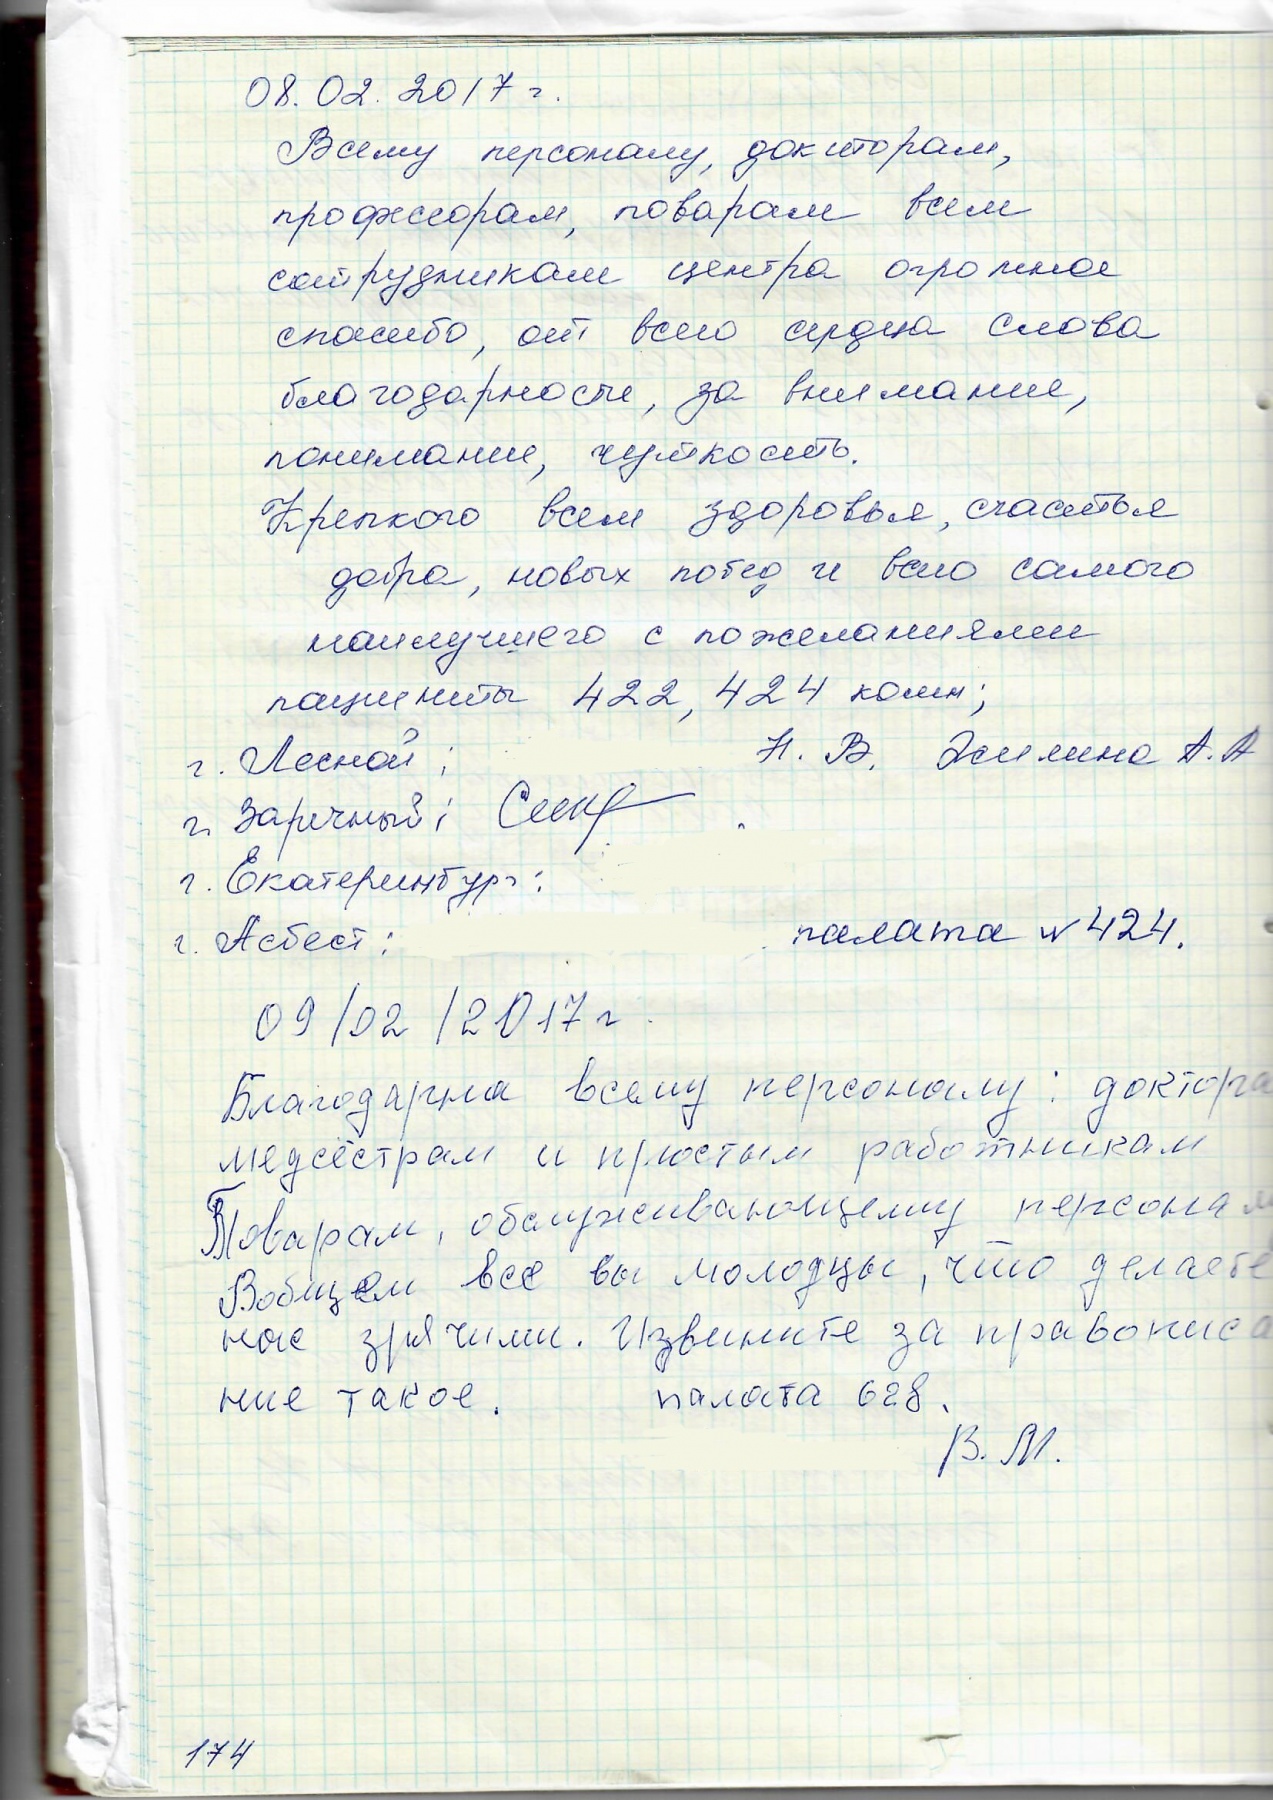 08.02.2017 г.
Всему персоналу, докторам,
профессорам, поварам всем
сотрудникам центра огромное
спасибо, от всего сердца слова
благодарности, за внимание,
понимание, чуткость.
Крепкого всем здоровья, счастья
добра, новых побед и всего самого
наилучшего с пожеланиями
пациенты 422, 424 комн;
г. Лесной; Н. В. Жилина А. А
г. Заречный;
г. Екатеринбург:
г. Асбест: палата № 424.
09/02/2017 г.
Благодарна всему персоналу: доктора
медсёстрам и простым работникам
Поварам, обслуживающему персонал
Вобщем все вы молодцы, что делаете
нас зрячими. Извините за правописа
ние такое. палата 628.
В. М.
174